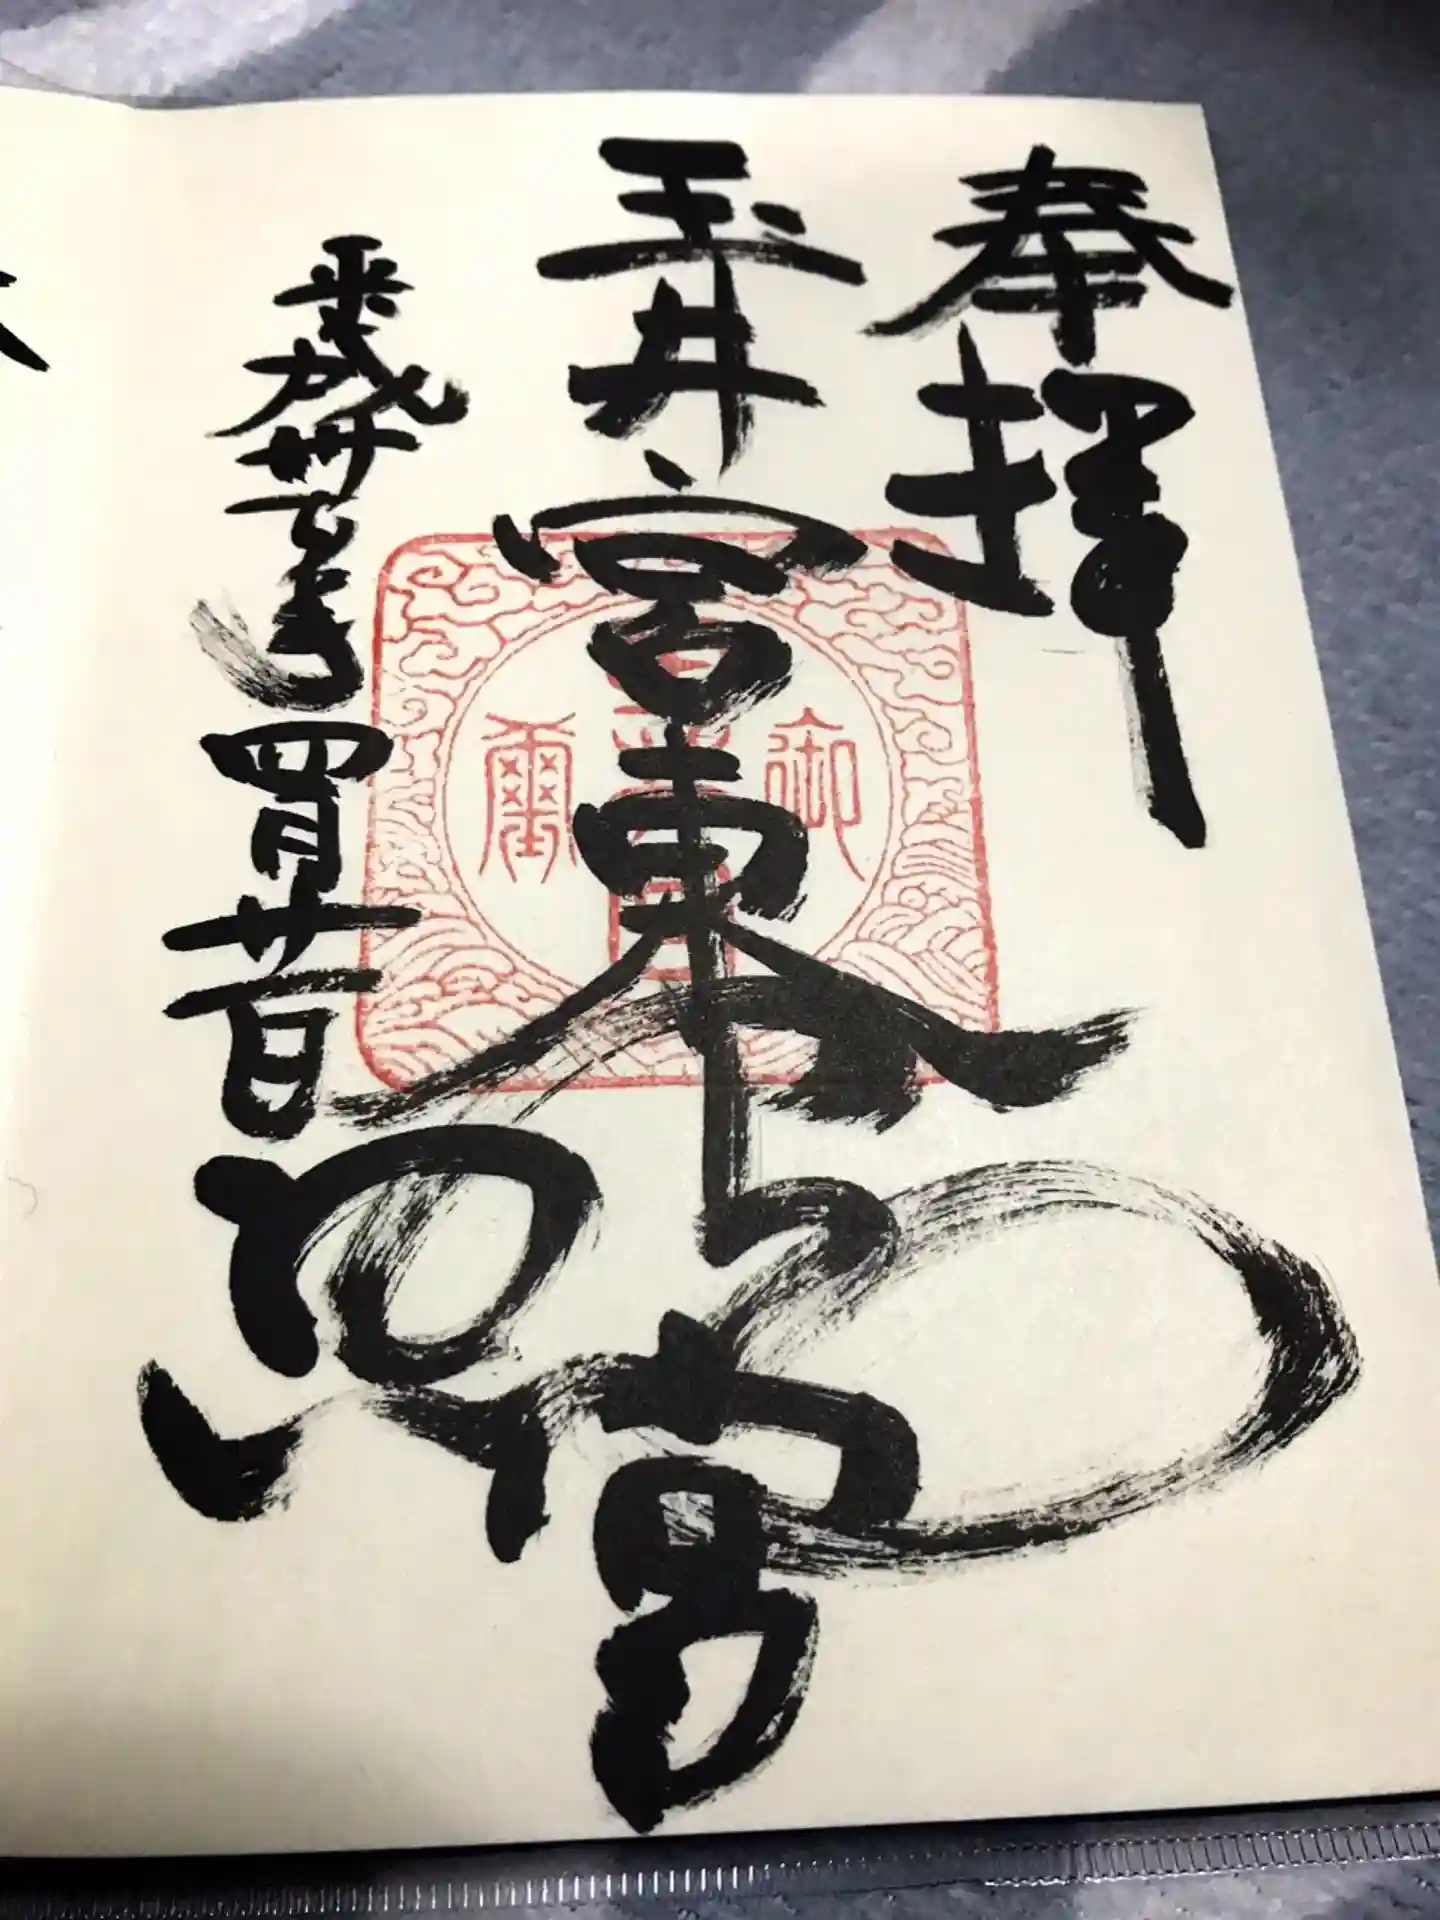 奉拝
玉井宮東照宮
平成卅一年四月廿一日
御璽